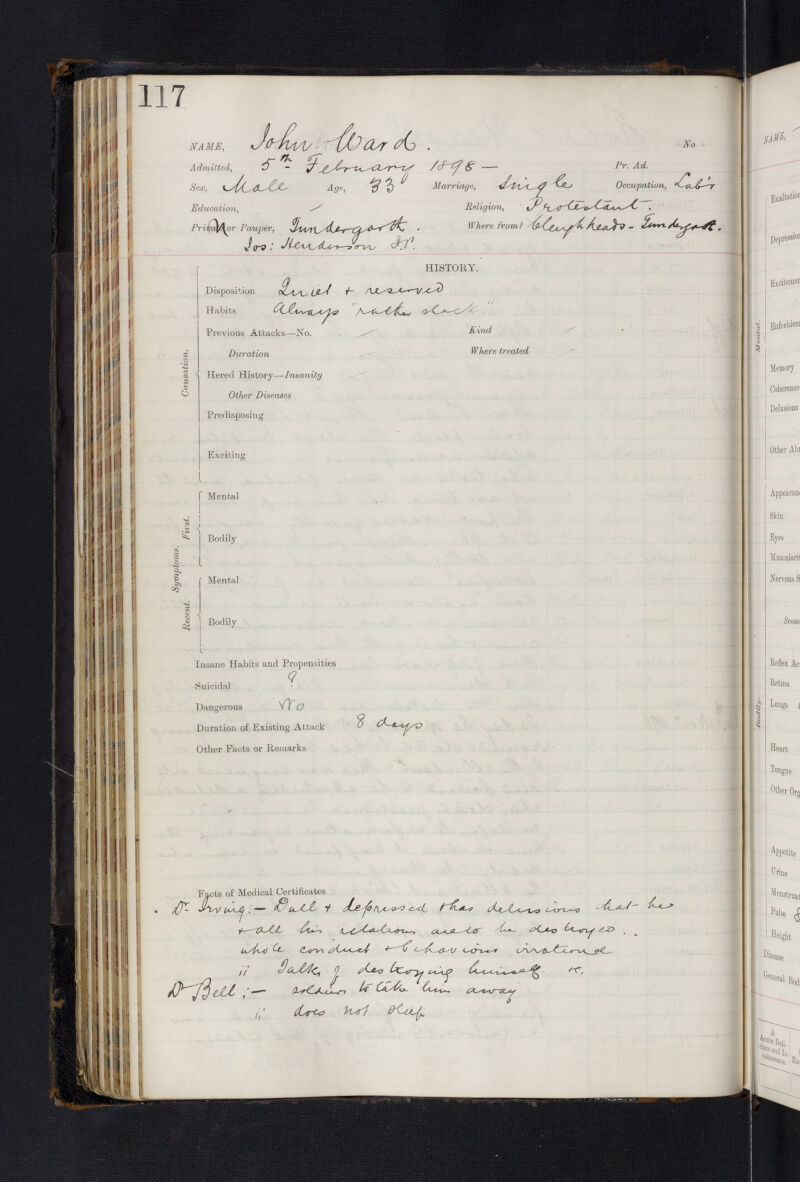 117
NAME, John Ward. No
Admitted, 5th February 1898 — Pr. Ad.
Sex, Male Age, 33 Marriage, Single Occupation, Lab'r
Education, / Religion, Protestant.
Private or Pauper, Tundergarth. Where from? Cleughheads - Tundergarth.
Jos: Henderson I.P.
HISTORY.
Causation.
Disposition Quiet + reserved
Habits Always "rather slack"
Previous Attacks—No. / Kind /
Duration / Where treated /
Hered History—Insanity
Other Diseases
Predisposing
Exciting
Symptoms.
First.
Mental
Bodily
Recent.
Mental
Bodily
Insane Habits and Propensities
Suicidal ?
Dangerous No
Duration of Existing Attack 8 days
Other Facts or Remarks
Facts of Medical Certificates
Dr. Irving:— Dull + depressed + has delusions that he
+ all his relations are to be destroyed..
whole conduct + behaviour irrational
ii Talks of destroying himself &c.
Dr Bell:— soldiers to take him away
ii does not sleep
NAME,
Mental.
Exaltation
Depression
Excitement
Enfeeblem
Memory
Coherence
Delusions
Other Abn
Bodily.
Appearan
Skin
Eyes
Muscularit
Nervous S
Sense
Reflex Ac
Retina
Lungs
Heart
Tongue
Other Org
Appetite
Urine
Menstruat
Pulse
Height
Disease
General Bod
A
Acute Deli-
rious and In-
coherence.